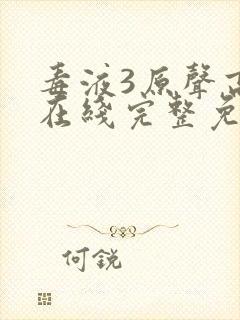 毒液3原聲
在綫完整免
何銳